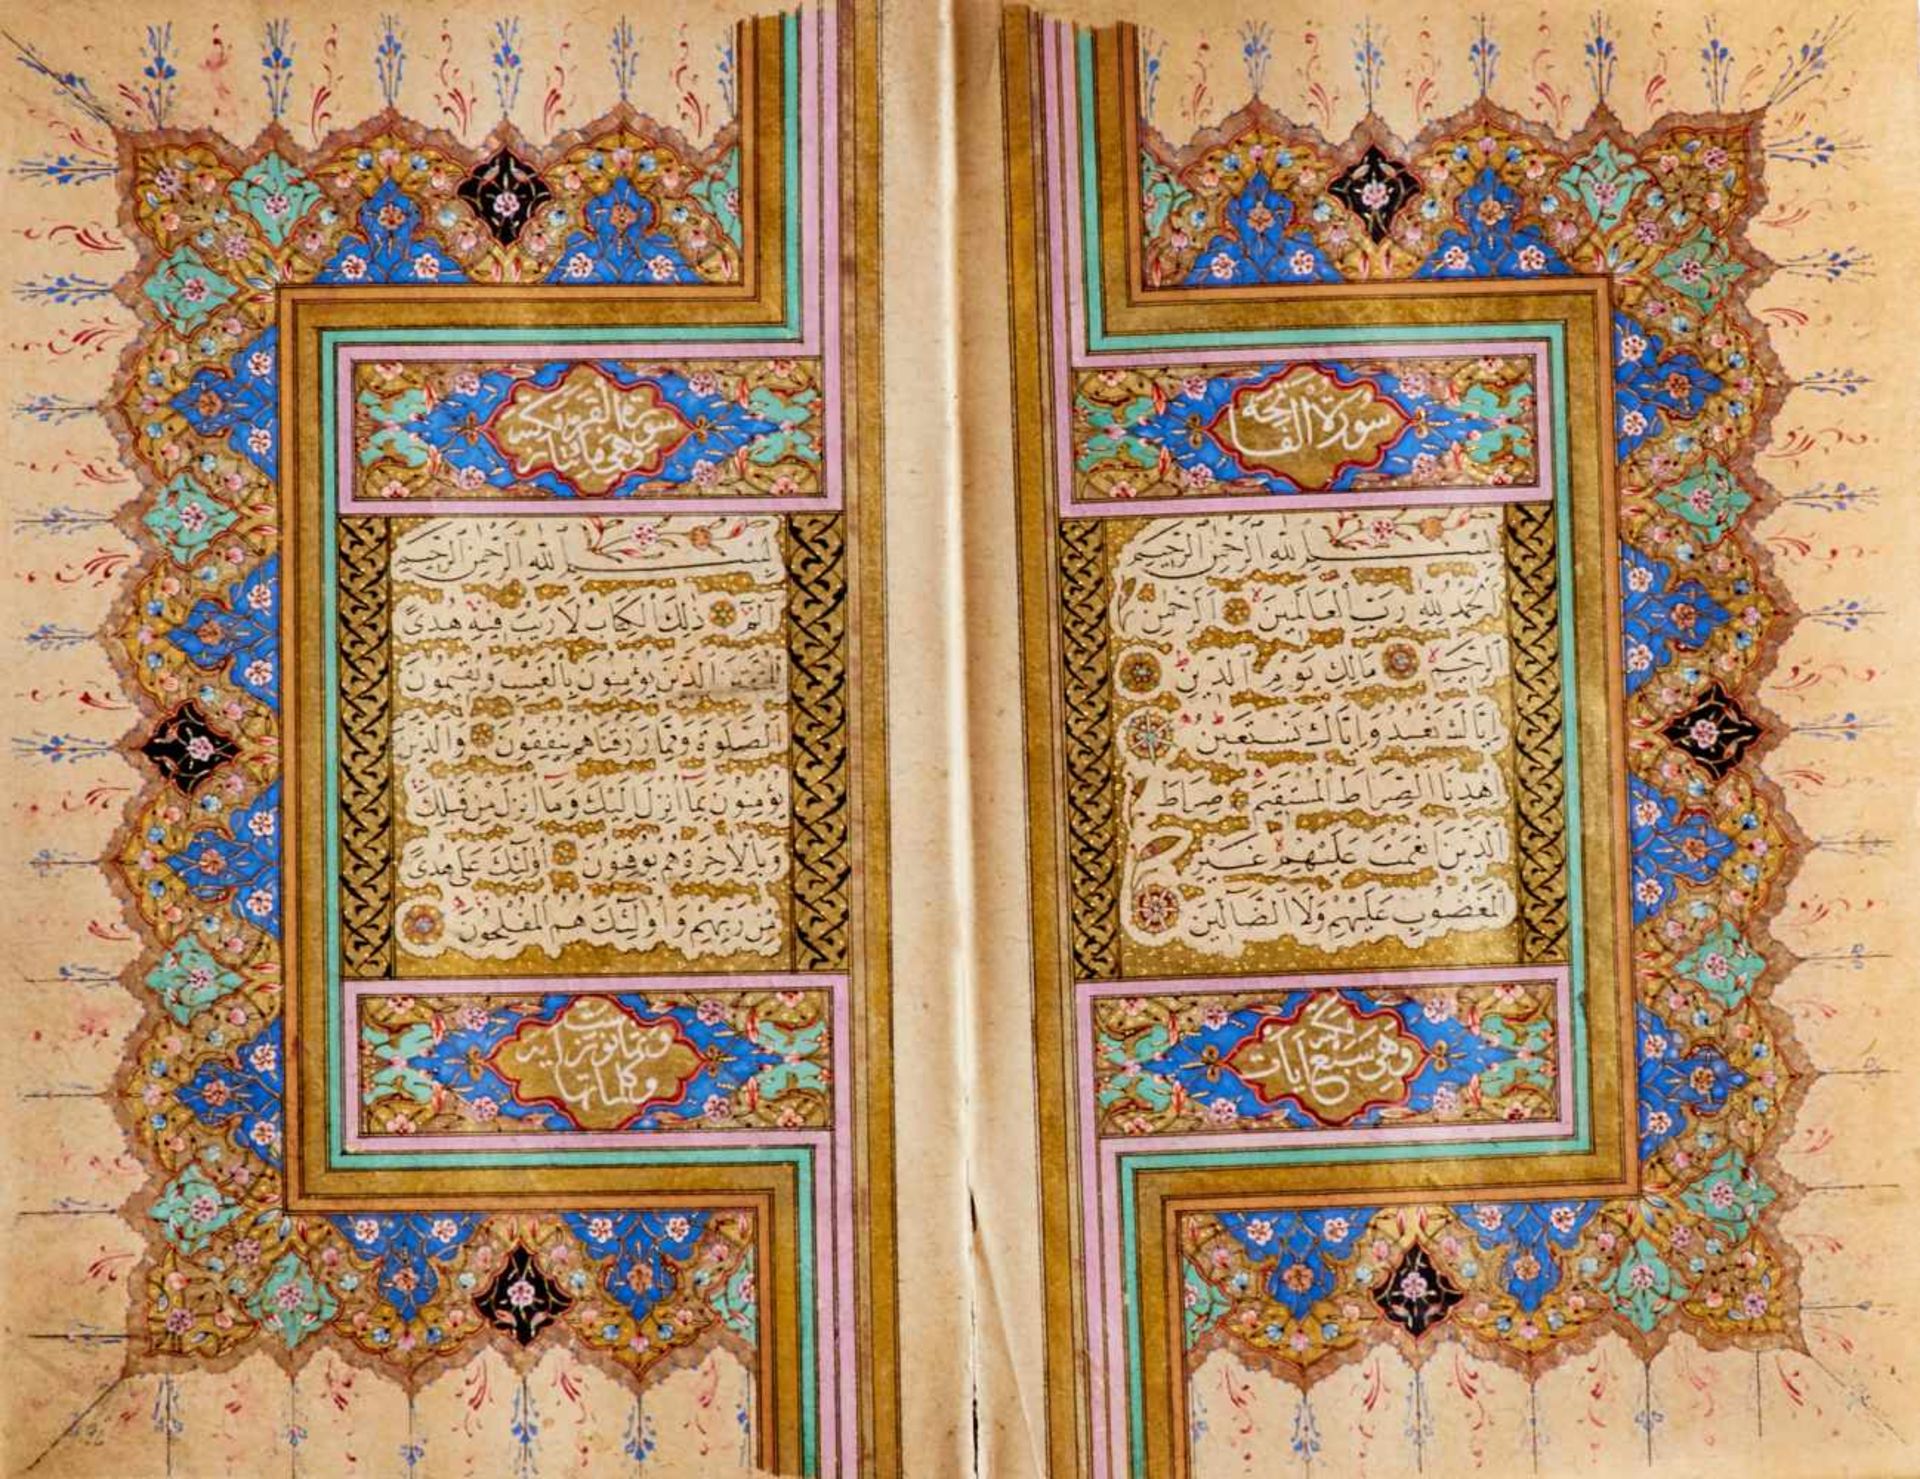 سورة الفاتحة
بسم الله الرحمن الرحيم
الحمد لله رب العالمين الرحمن
الرحيم مالك يوم الدين
اياك نعبد واياك نستعين
اهدنا الصراط المستقيم صراط
الذين انعمت عليهم غير
المغضوب عليهم ولا الضالين
وهي سبع آيات
سورة البقرة
وهي مأتان
بسم الله الرحمن الرحيم
الم ذلك الكتاب لا ريب فيه هدى
للمتقين الذين يؤمنون بالغيب ويقيمون
الصلوة ومما رزقناهم ينفقون والذين
يؤمنون بما انزل اليك وما انزل من قبلك
وبالاخرة هم يوقنون اولئك على هدى
من ربهم واولئك هم المفلحون
وثمانون آية
وكلماتها